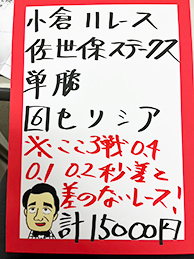 小倉11レース
佐世保ステークス
単勝
6セリシア
※ここ3戦0.4
0.1 0.2秒差と
差のないレース!
計15000円